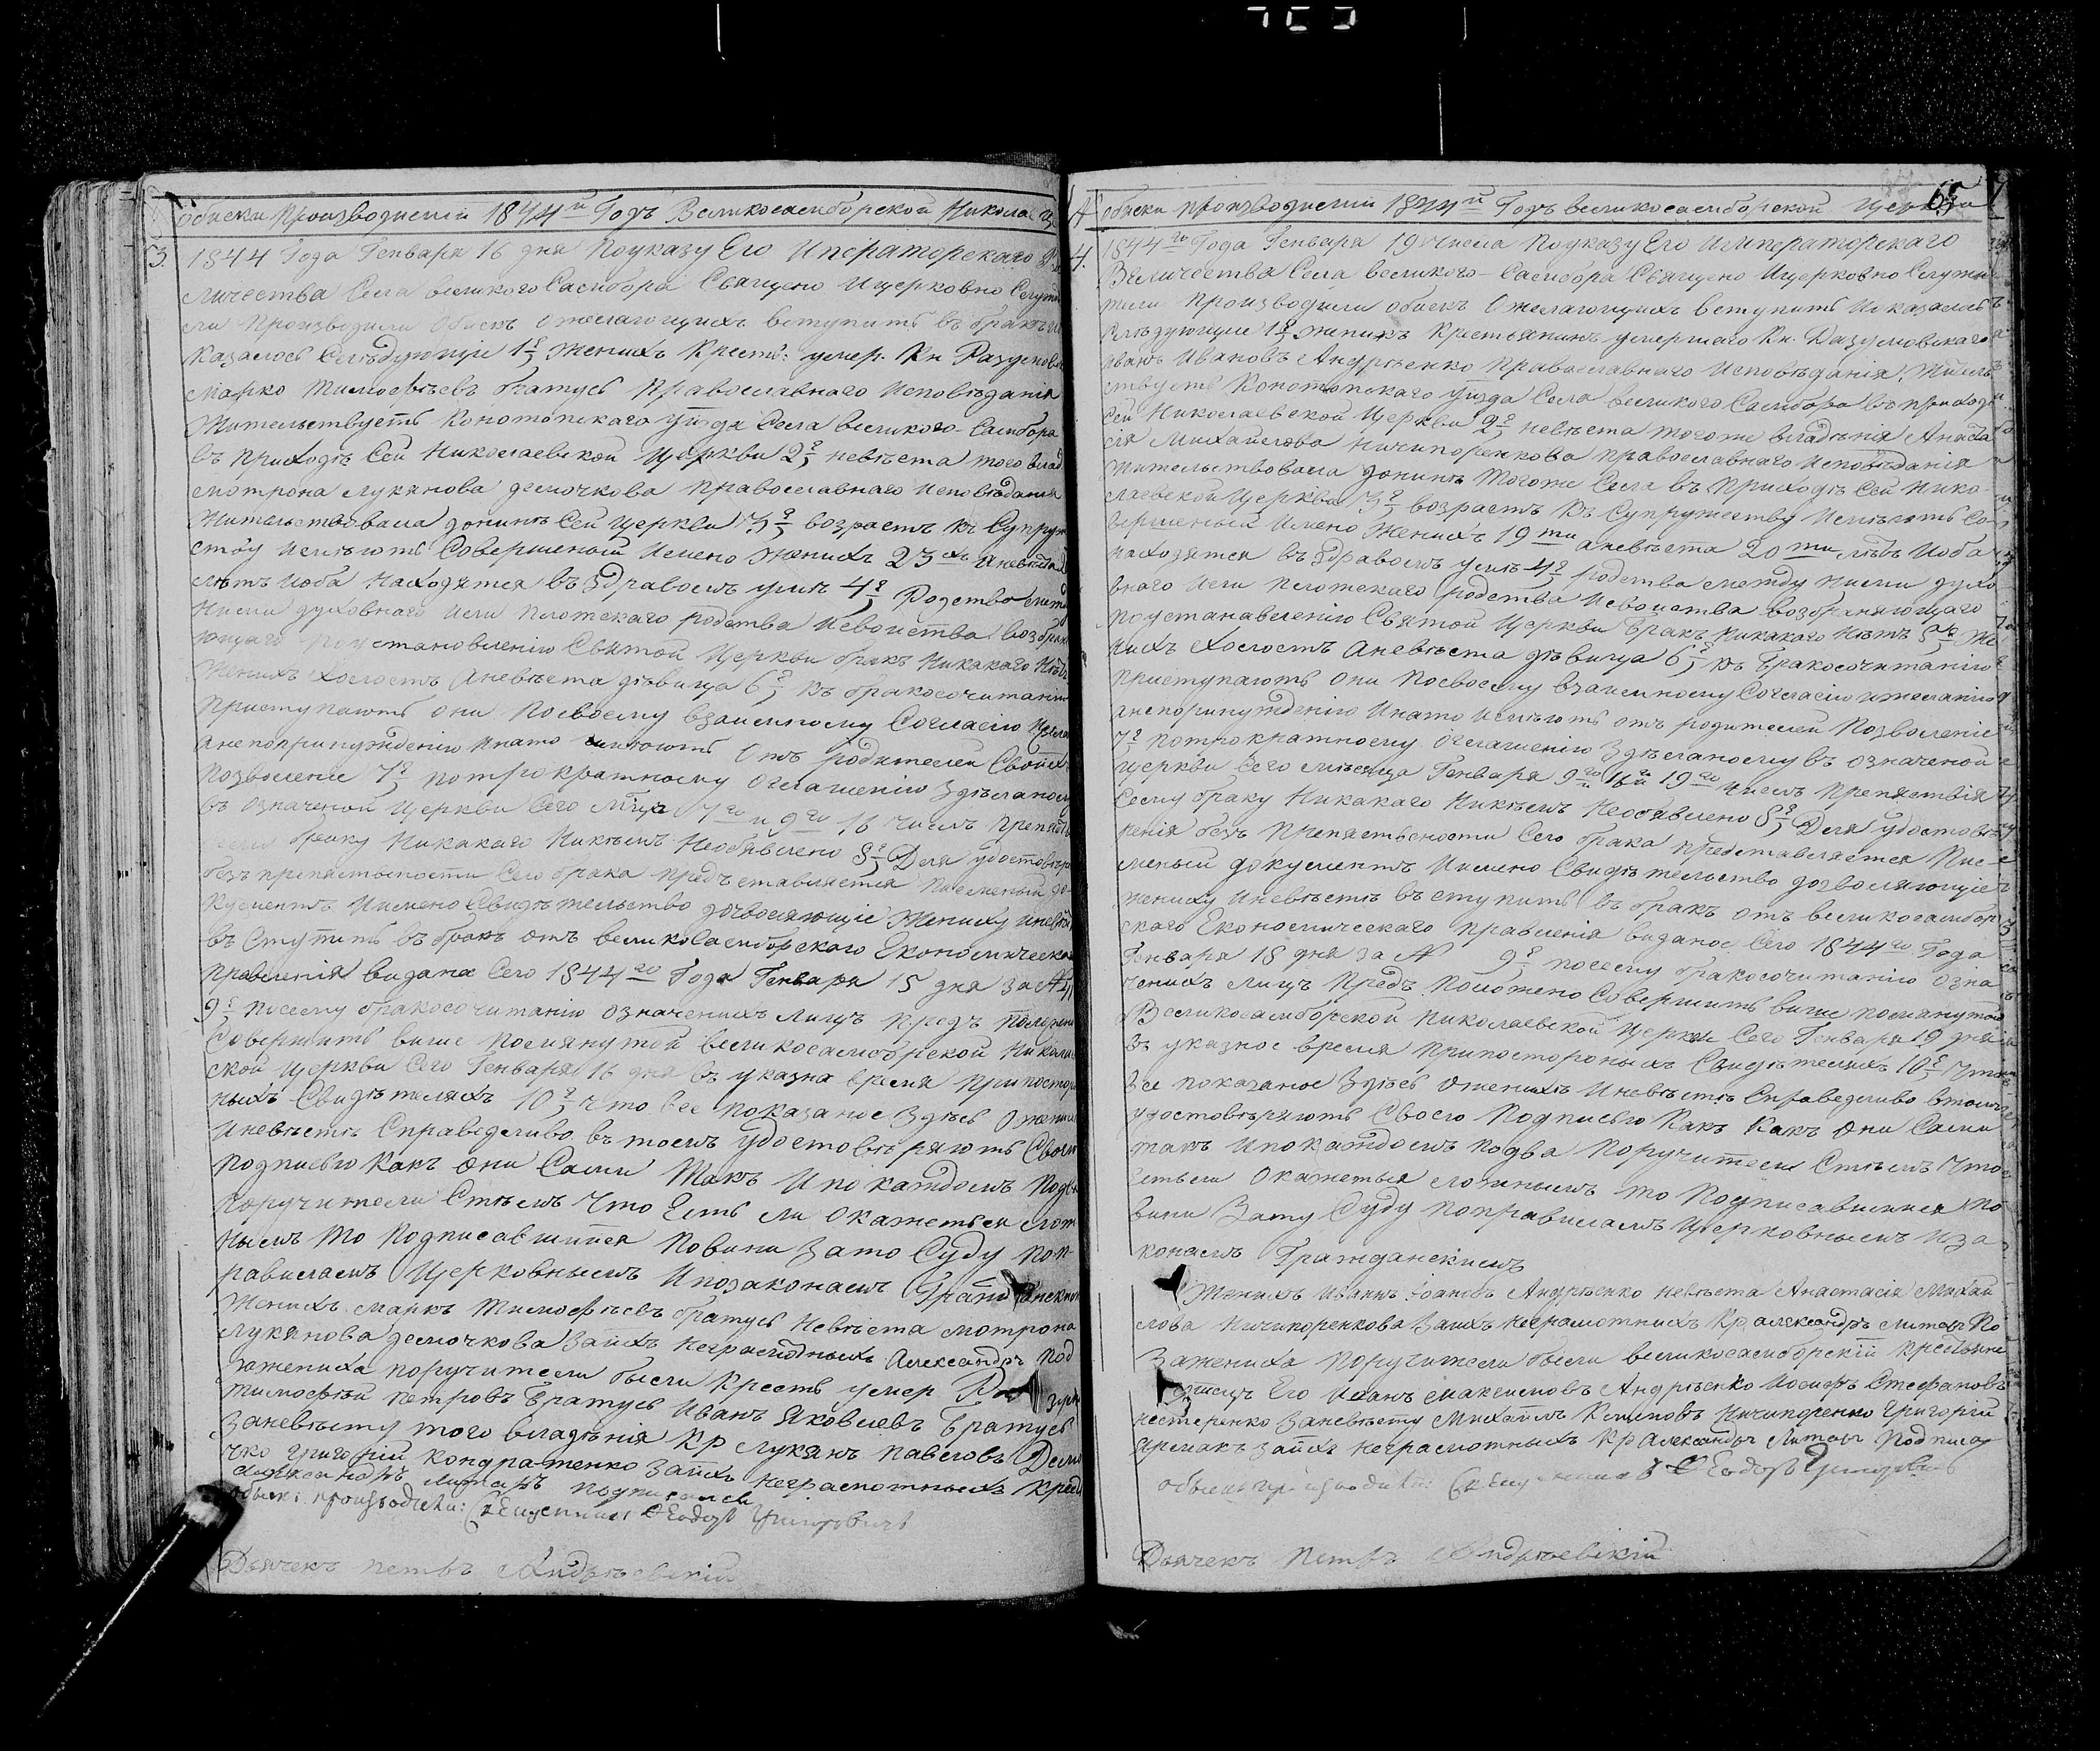 обиски производиеми 1844й Годъ Великосамборской Николае
3.
1844 Года Генваря 16 дня Поуказу Его Императорскаго
личества Села великого Самбора Священо Ицерковно Служит
ли Производили обискъ ожелающихъ вступить въ бракъ
казалось Слѣдующіе 1е жених Кресть: умер. Кн Разумовск
марко тимофѣевъ братусь Православнаго Исповѣданія
Жительствуетъ Конотопскаго уѣзда Села великого-Самбора
въ приходѣ Сей Николаевской Церкви 2е невѣста того влад
мотрона лукянова демочкова православнаго исповѣданія
Жительствовала донинѣ Сей церкви 3е возрастъ къ Супруж
ству Имѣютъ Совершеный Имено женихъ 23хъ аневѣста
лѣтъ иоба находятся въ здравомъ умѣ 4е Родства между
ними духовнаго или плотскаго родства Исвоиства возбран
ющаго поустановленію Святой Церкви бракъ Никакаго Нѣтъ
женихъ холостъ аневѣста дѣвица 6е къ бракосочитанію
приступаютъ они посвоему взаимному Согласію
анепопринужденію инато имѣютъ отъ родителей Своихъ
позволеніе 7е потрократному оглашенію здѣланому
въ означеной церкви Сего 7го и 9го 16 числъ препятс
браку Никакаго Никѣмъ Необявлено 8е Для удостовѣр
безъпрепятствености Сего брака предъставляется писменый до
кументъ Имено Свидѣтельство дозволяющіе жениху иневѣс
въступить въ бракъ отъ великосамборскаго Економическаго
правленія видана Сего 1844го Года Генваря 15 дня за №
9е посему бракосочитанію означенихъ лицъ предъ положено
Совершить више помянутой великосамборской Никола
ской церкви Сего Генваря 16 дня въ указна время припостор
ныхъ Свидѣтеляхъ 10е что все показаное здѣсь ожених
Иневѣстѣ Справедливо въ томъ удостовѣряютъ Своим
подписью Какъ они Сами Такъ Ипокаждомъ Подва
поручители Стѣмъ Что Естъ ли окажеться лож
нымъ то подписавшиися повини зато Суду поп
равиламъ Церковнымъ Ипозаконамъ Гражданским
Женихъ маркъ тимофѣевъ братусь Невѣста мотрона
лукянова демочкова заихъ неграмотныхъ Александръ под
зажениха поручители были Кресть умер
тимофѣй петровъ братусь Иванъ Яковлевъ Братусь
Заневѣсту того владѣнія Кр лукянъ павловъ Демо
чко григорій кондратенко заихъ неграмотныхъ Крест
александръ литаръ подписался
обыскъ производили: Священникъ Ѳеодоръ Григоровичъ
Дьячекъ петръ Андрѣевскій
65
№ обиски производиеми 1844й Годъ великосамборской Церкви
4.
1844го Года Генваря 19 числа поуказу Его Императорскаго
Величества Села великого-Самбора Священо Ицерковно Служи
тели производили обискъ ожелающихъ вступить Иоказалось
Слѣдующие 1е женихъ Крестьянинъ умершаго Кн. Разумовскаго
иванъ ивановъ Андрѣенко православнаго Исповѣданія, Житель
ствуетъ Конотопскаго уѣзда Села великого Самбора въ приходѣ
Сей Николаевской Церкви 2е невѣста тогоже владѣнія Анаста
сія михайлова ничипоренкова православнаго Исповѣданія
Жительствовала донинѣ Тогоже Села въ Приходѣ Сей Нико-
лаевской Церкви 3е возрастъ къ Супружеству Имѣютъ Со-
вершеный Имено женихъ 19ти аневѣста 20ти лѣтъ Иоба
находятся въ здравомъ умѣ 4е родства между ними духо
внаго или плотскаго родства Исвоиства возбраняющаго
поустанавленію Святой Церкви бракъ никакаго нѣтъ 5е Же
нихъ Холостъ Аневѣста дѣвица 6е къ бракосочитанію
приступаютъ они посвоему взаимному Согласію ижеланію
анепопринужденію инато Имѣютъ отъ родителей позволеніе
7е потрократному оглашенію здѣланому въ означеной
церкви Сего мѣсяца Генваря 9го 16й 19го числъ препятствія
Сему браку Никакаго Никѣмъ Необявлено 8е Для удостовѣ
ренія безъ препятствености Сего брака представляется Пис-
меный документъ Имено Свидѣтельство дозволяющіе
жениху иневѣстѣ въступить въ бракъ отъ великосамбор
скаго Економическаго правленія виданое Сего 1844го Года
Генваря 18 дня за № 9е посему бракосочитанію озна
ченихъ лицъ предъ положено Совершить више помянутой
Великосамборской Николаевской церкви Сего Генваря 19 дня
въ указное время припостороныхъ Свидѣтеляхъ 10е Что
Все показаное здѣсь оженихѣ Иневѣстѣ Справедливо втомъ
удостовѣряютъ Своею подписью Какъ Какъ они Сами
такъ Ипокаждомъ подва поручители Стѣмъ Что
Естьли окажеться ложнымъ то подписавшиися по
вини зату Суду поправиламъ Церковнымъ Иза
конамъ Гражданскимъ
Женихъ иванъ Іоановъ Андрѣенко невѣста Анастасія михай
лова ничипоренкова заихъ неграмотнихъ Кр александръ литаръ По
Зажениха поручители были великосамборскій крестьяне
Его Иванъ максимовъ Андрѣенко Иосифъ Стефановъ
нестеренко заневѣсту михаилъ Климовъ ничипоренко григорій
ярмакъ заихъ неграмотныхъ Кр Александръ литаръ подписал
обыскъ производили: Священникъ Ѳеодоръ Григоровичъ
Дьячекъ петръ Андрѣевскій